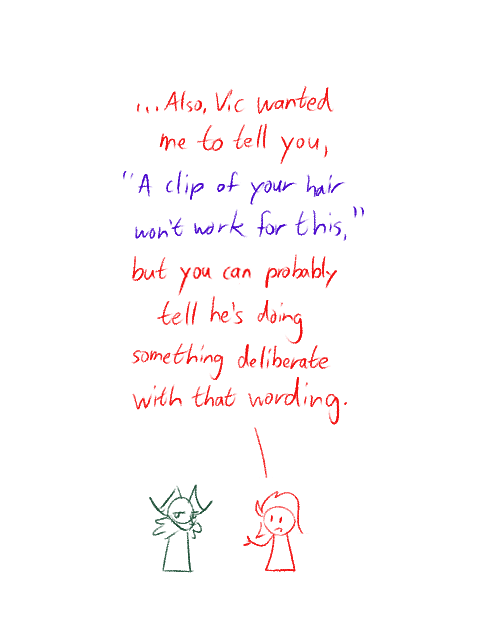 ...Also, Vic wanted
me to tell you,
"A clip of your hair
won't work for this,"
but you can probably
tell he's doing
something deliberate
with that wording.